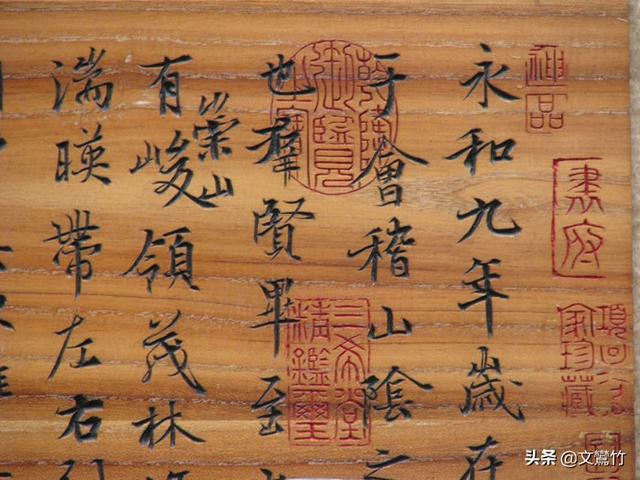 書府
項子京
家珍藏
永和九年歲在
于會稽山陰之
乾隆
御覽
三希堂
精鑑璽
也羣賢畢至
有崇山峻領茂林
湍暎帶左右引
头条 @文鸞竹